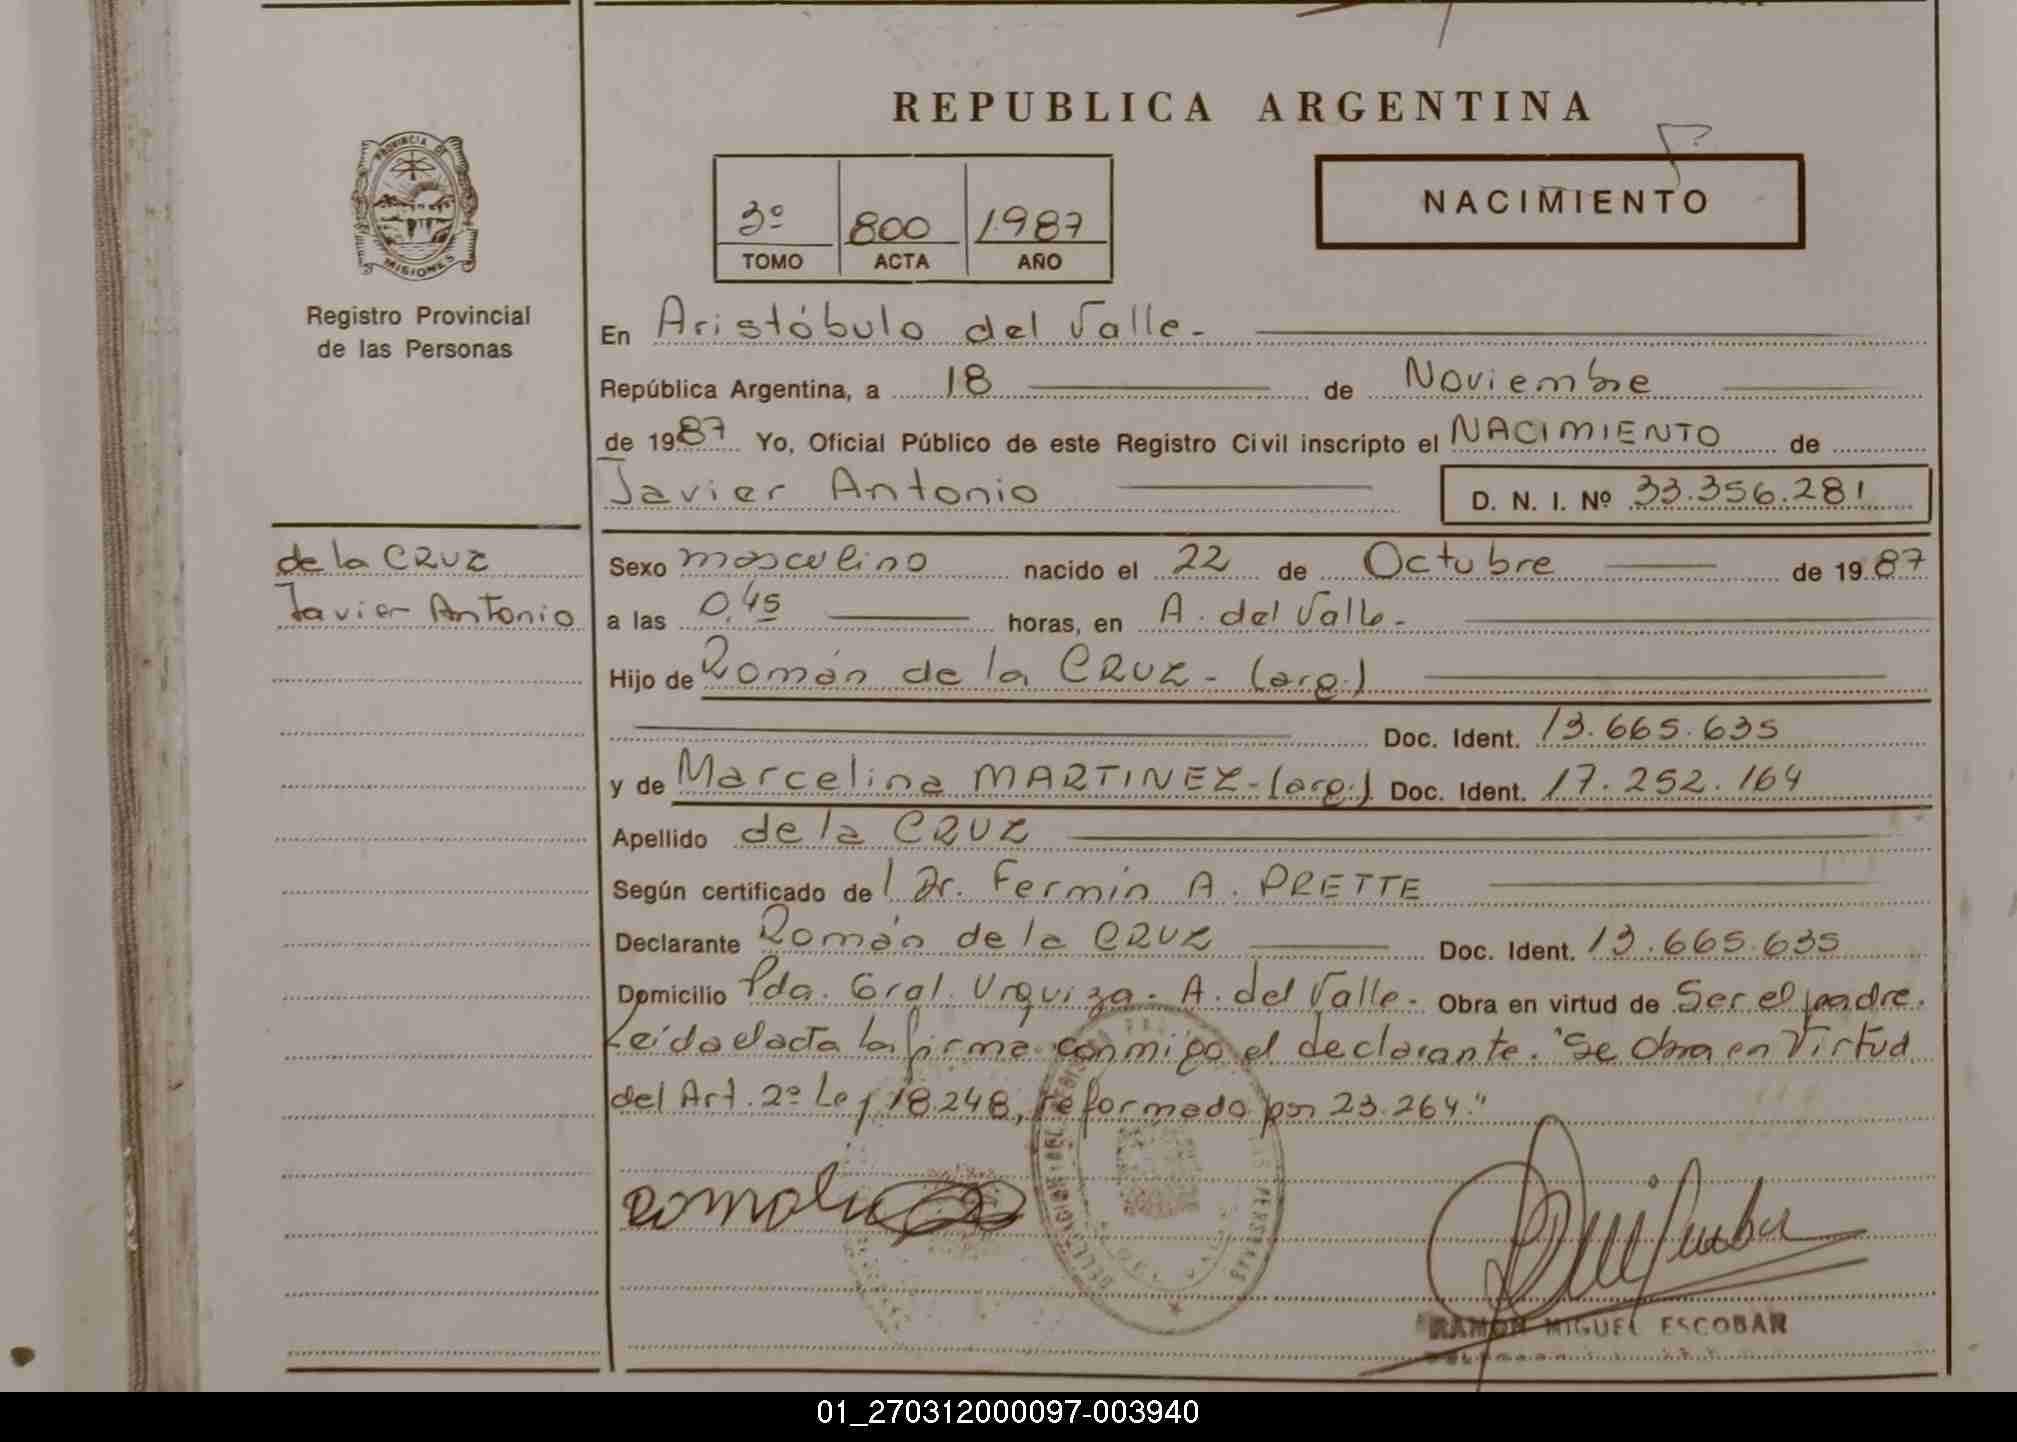 REPUBLICA ARGENTINA
PROVINCIA DE
MISIONES
Registro Provincial
de las Personas
3º 800 1987
TOMO ACTA AÑO
NACIMIENTO
En Aristóbulo del Valle-
República Argentina, a 18 de Noviembre
de 1987 Yo, Oficial Público de este Registro Civil inscripto el NACIMIENTO de
Javier Antonio D. N. I. Nº 33.356.281
de la CRUZ
Javier Antonio
Sexo masculino nacido el 22 de Octubre de 1987
a las 0,45 horas, en A. del Valle-
Hijo de Román de la CRUZ - (arg.)
Doc. Ident. 13.665.635
y de Marcelina MARTINEZ - (arg.) Doc. Ident. 17.252.164
Apellido de la CRUZ
Según certificado de l Dr. Fermín A. PRETTE
Declarante Román de la CRUZ Doc. Ident. 13.665.635
Domicilio Pda. Gral. Urquiza - A. del Valle - Obra en virtud de Ser el padre.
Leída el acta la firma conmigo el declarante. "Se Obra en Virtud
del Art. 2º Ley 18.248, reformado por 23.264."
RAMON MIGUEL ESCOBAR
01_270312000097-003940